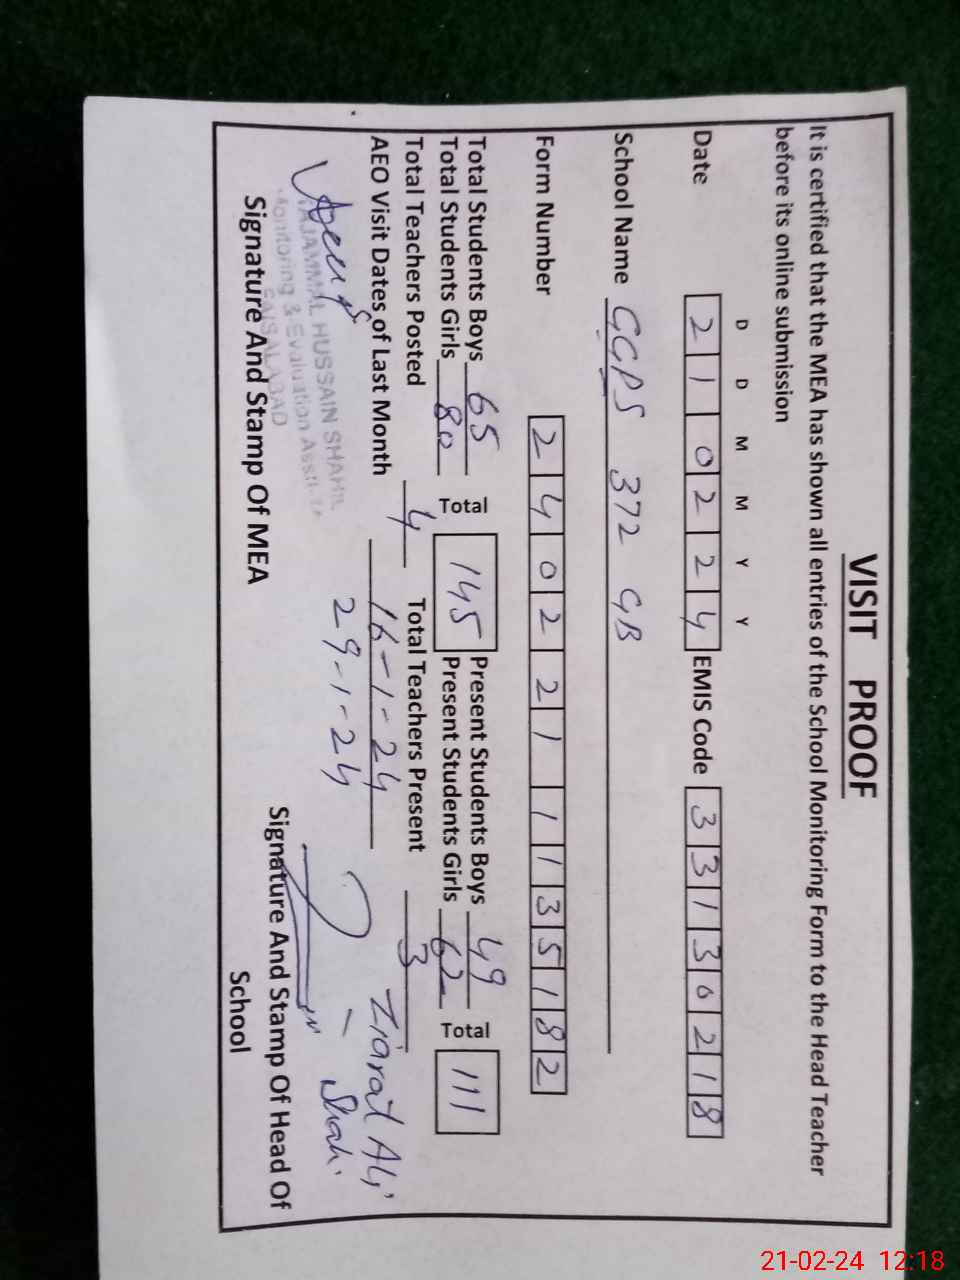 VISIT PROOF
It is certified that the MEA has shown all entries of the School Monitoring Form to the Head Teacher
before its online submission
D D M M Y Y
Date 2 1 0 2 2 4 EMIS Code 3 3 1 3 0 2 1 8
School Name GGPS 372 GB
Form Number 2 4 0 2 2 1 1 1 3 5 1 8 2
Total Students Boys 65 Present Students Boys 49
Total 145 Total 111
Total Students Girls 80 Present Students Girls 62
Total Teachers Posted 4 Total Teachers Present 3
AEO Visit Dates of Last Month 16-1-24
29-1-24
Ziarat Ali
Shah
HUSSAIN
Monitoring & Evaluation
FAISALABAD
Signature And Stamp Of MEA
Signature And Stamp Of Head Of
School
21-02-24 12:18